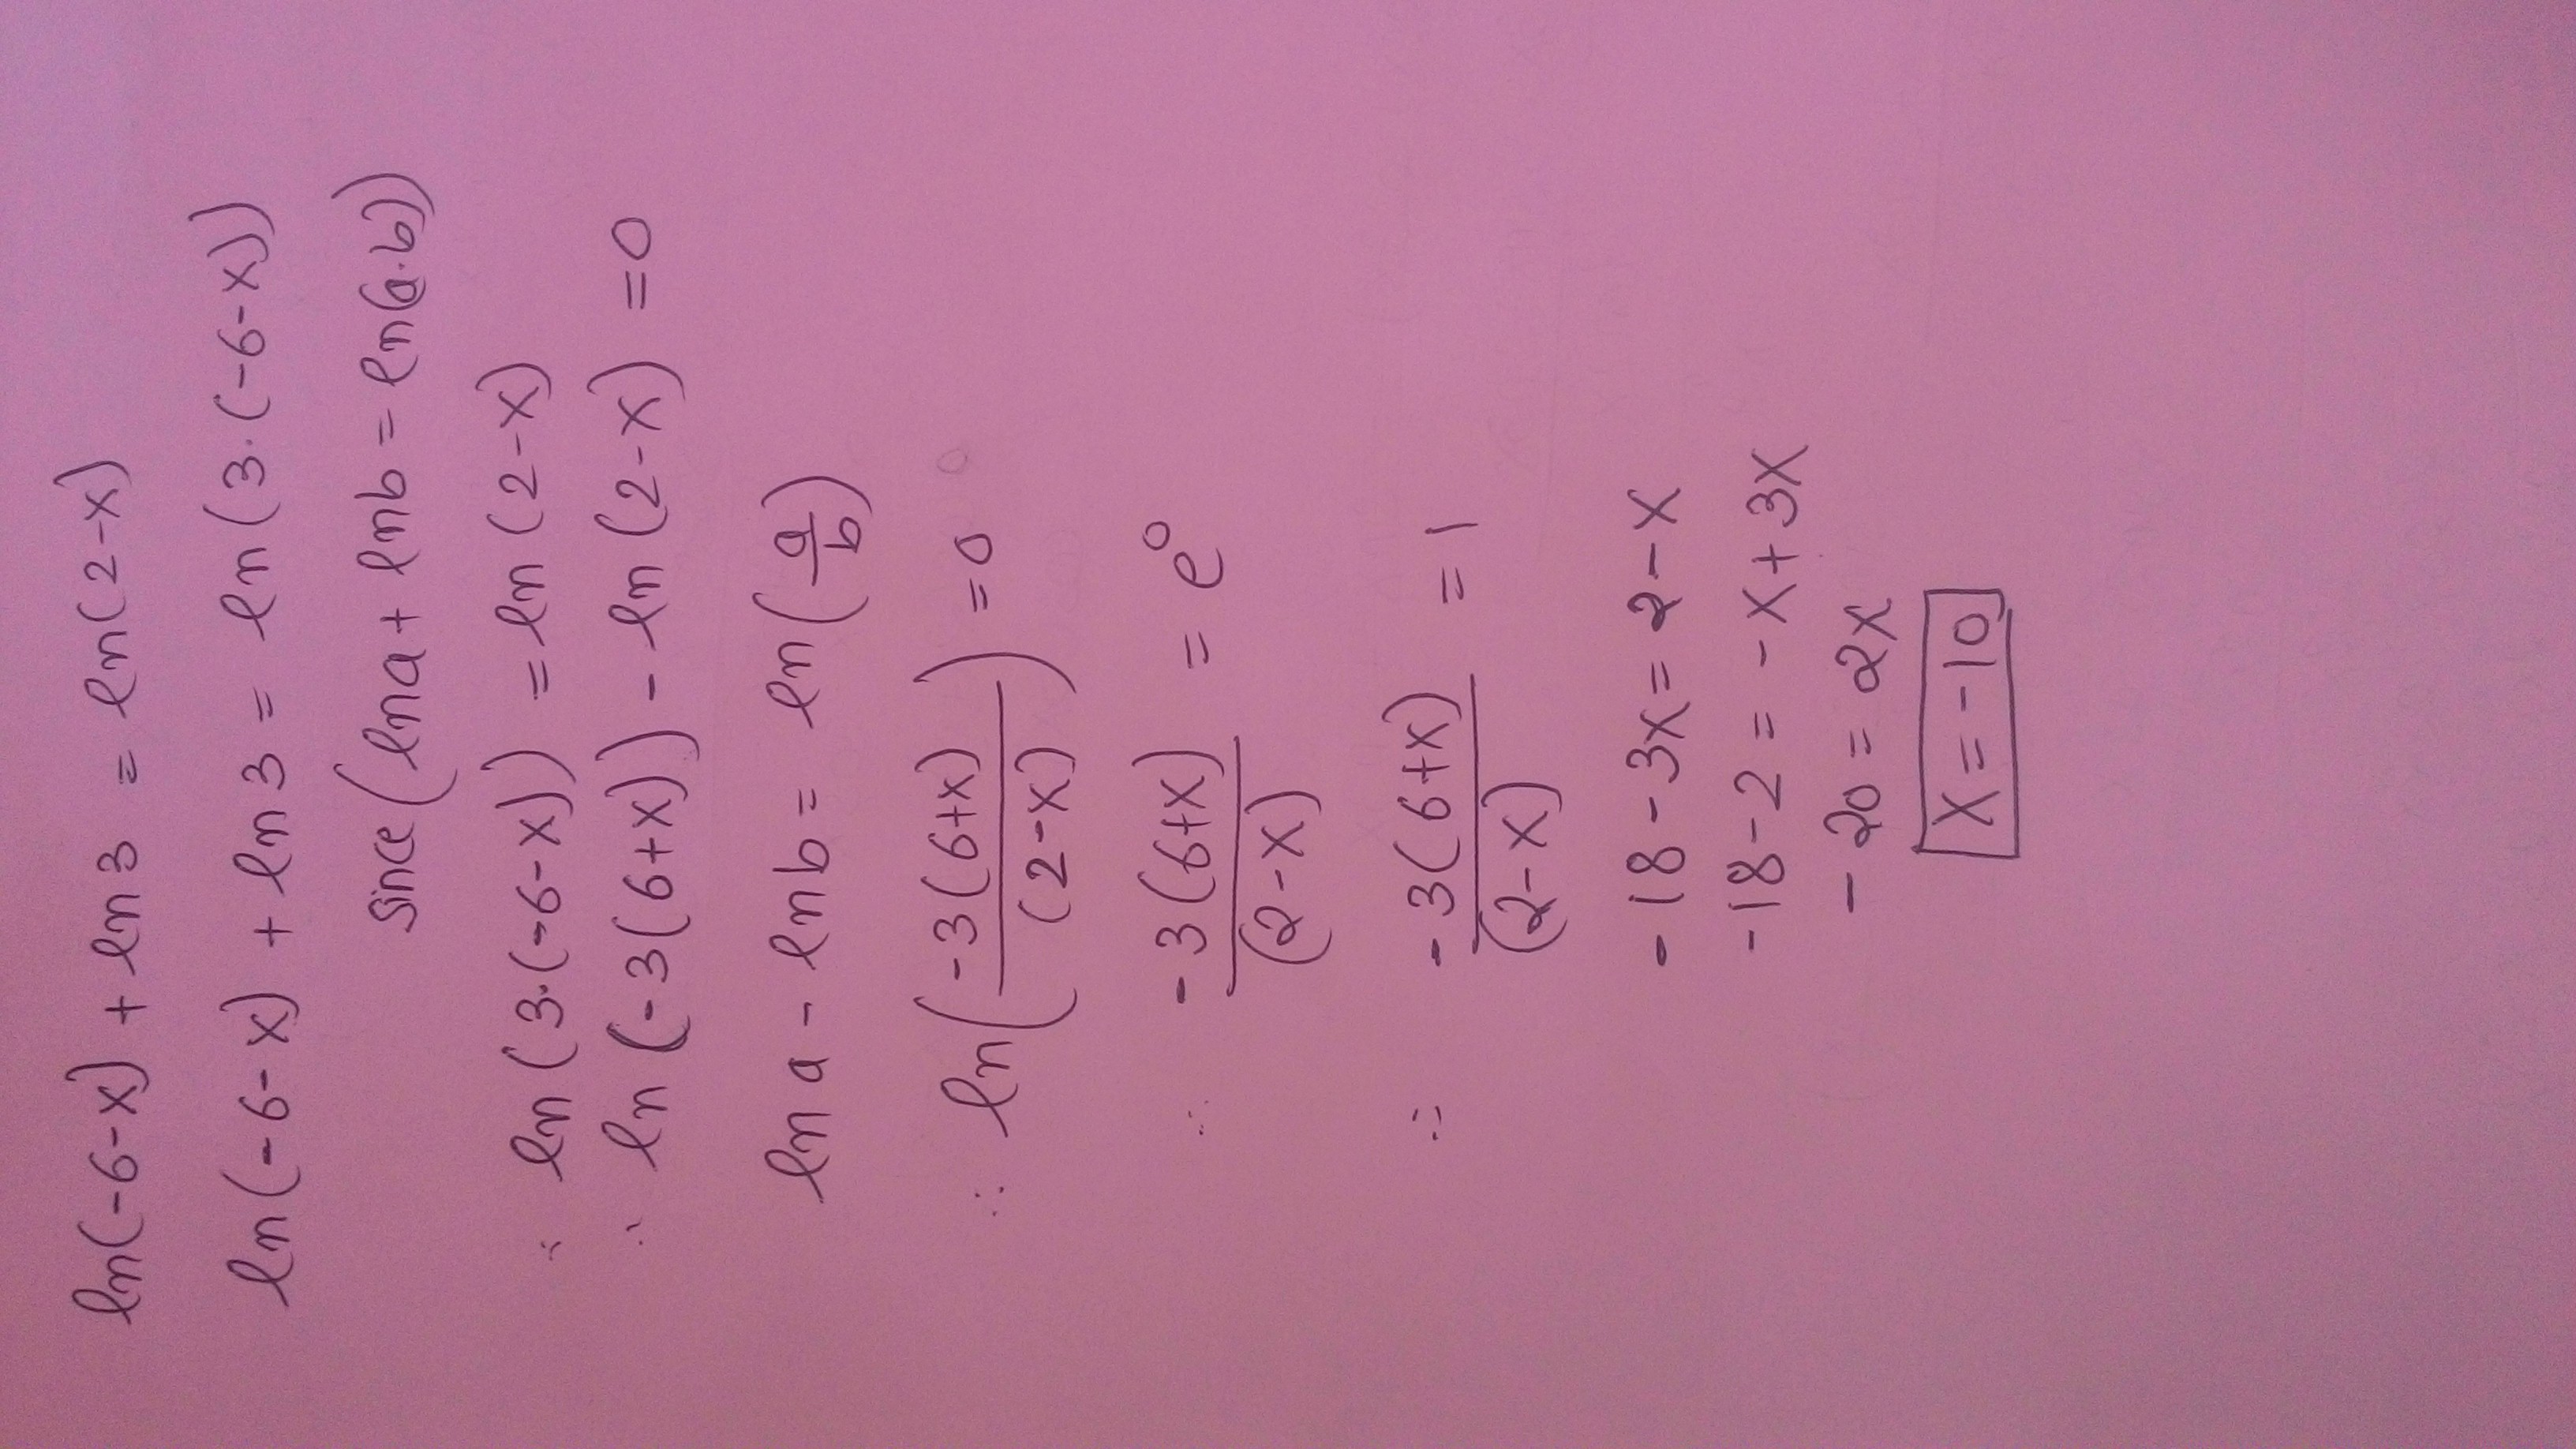 ln(-6-x) + ln3 = ln(2-x)
ln(-6-x) + ln3 = ln(3.(-6-x))
since (lna + lnb = ln(a.b))
∴ ln(3.(-6-x)) = ln(2-x)
∴ ln(-3(6+x)) - ln(2-x) = 0
ln a - lnb = ln(a/b)
∴ ln(-3(6+x)/(2-x)) = 0
∴ -3(6+x)/(2-x) = e⁰
∴ -3(6+x)/(2-x) = 1
-18-3x = 2-x
-18-2 = -x+3x
-20 = 2x
x = -10